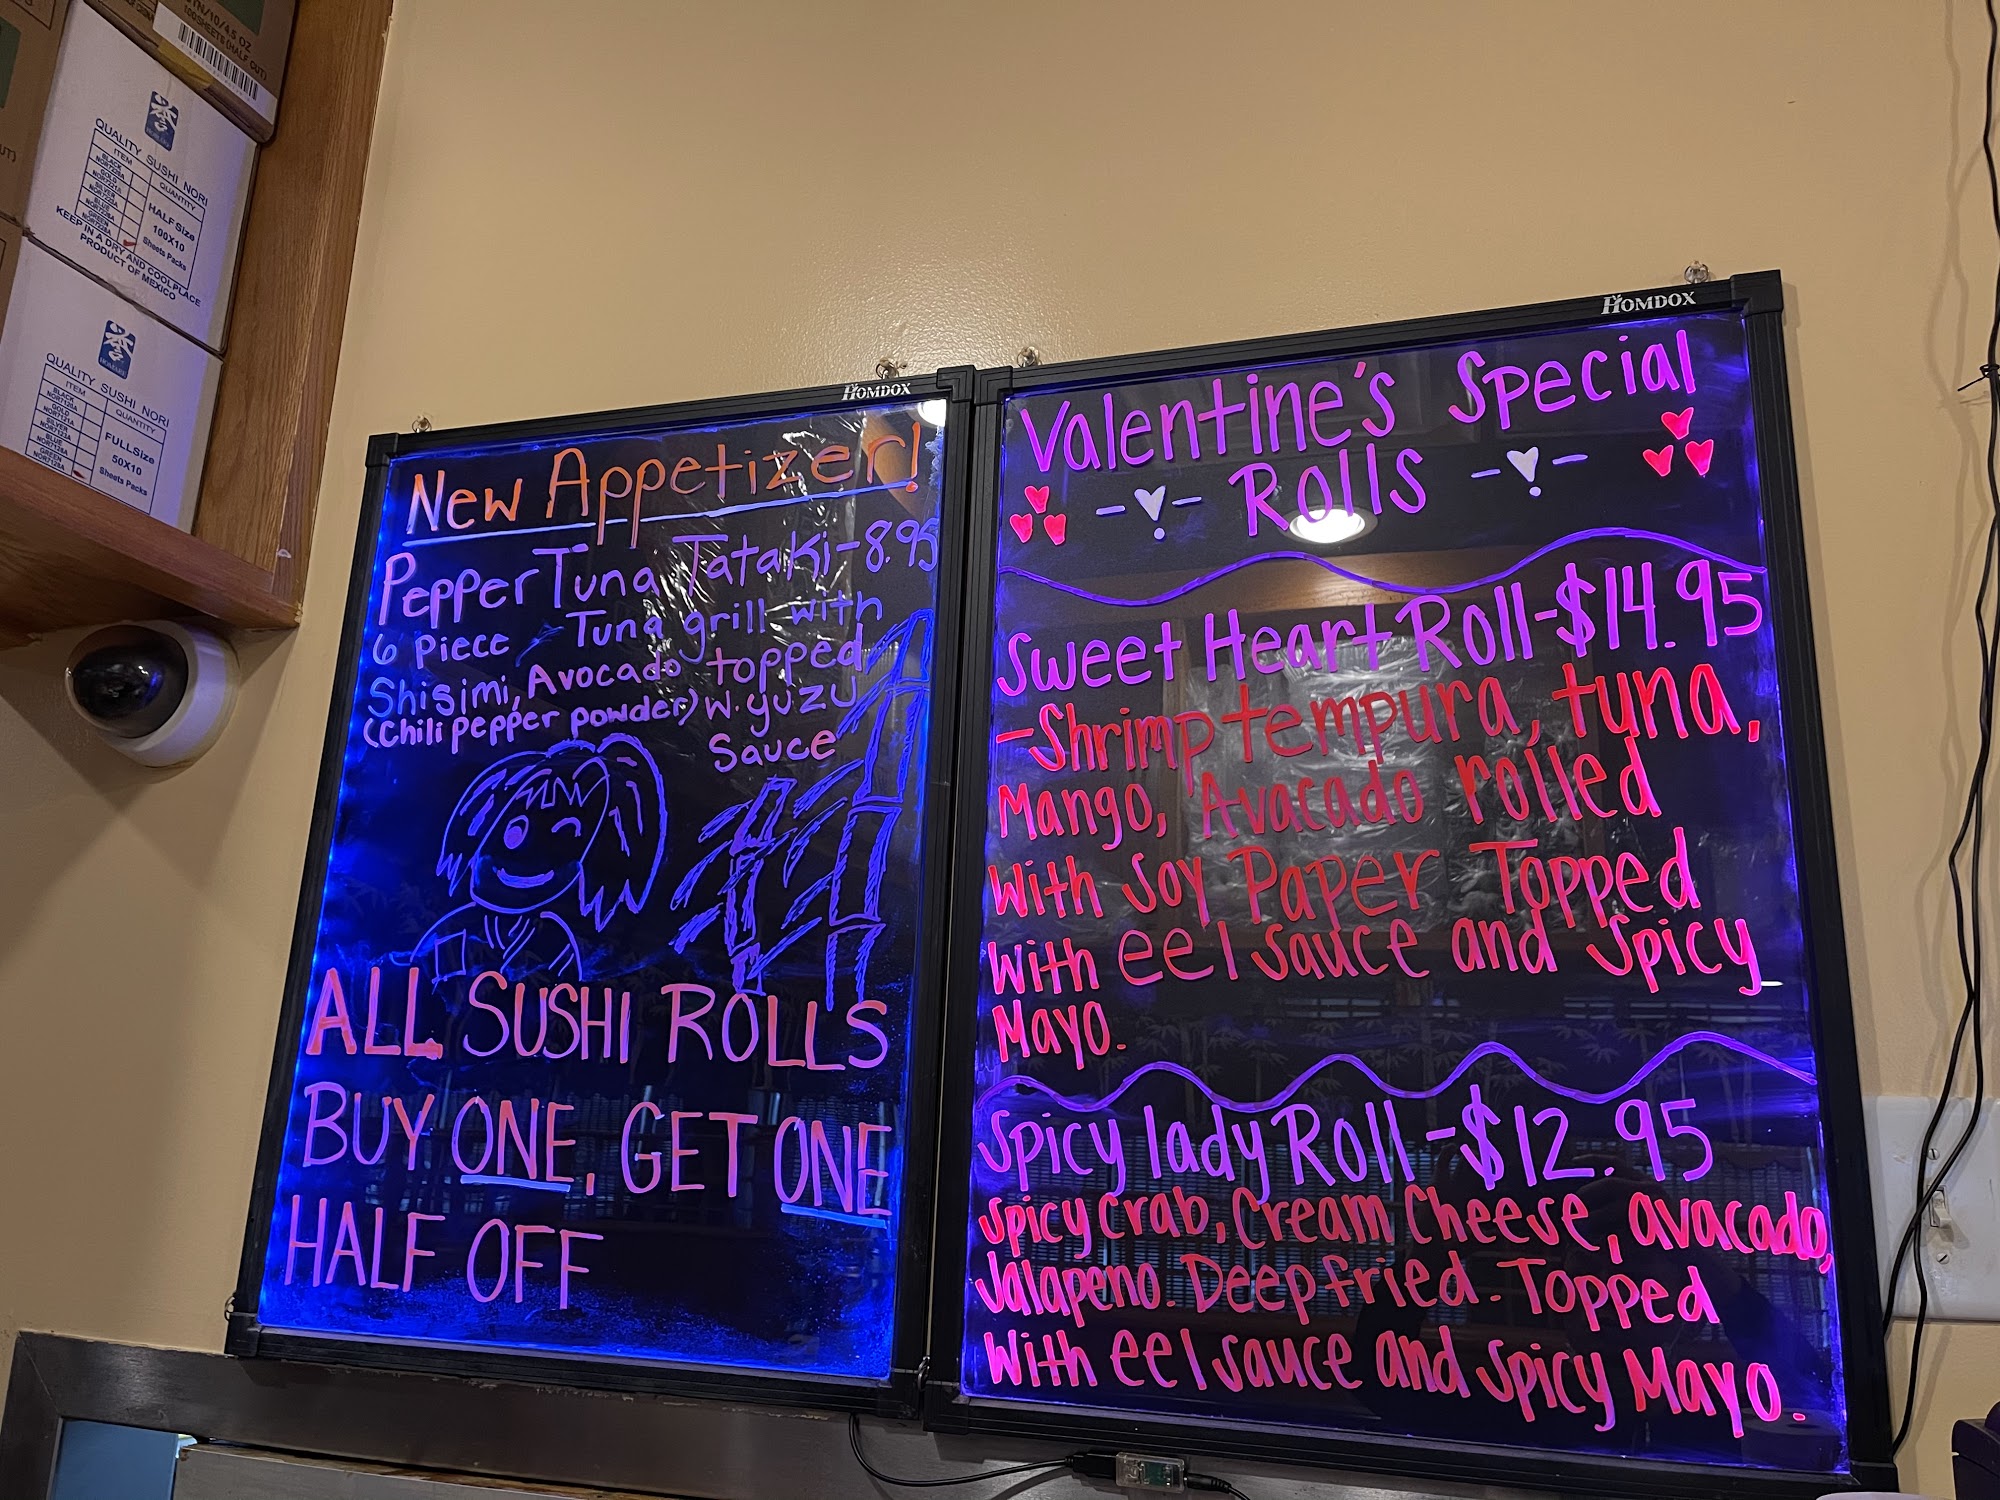 TN/10/4.5 OZ
100SHEETS (HALF CUT)
QUALITY SUSHI NORI
ITEM
QUANTITY
BLACK
NOR7228A
GOLD
NOR7221A
SILVER
NOR7223A
BLUE
NOR7226A
GREEN
NOR7228A
HALF Size
100X10
Sheets Packs
KEEP IN A DRY AND COOLPLACE
PRODUCT OF MEXICO
QUALITY SUSHI NORI
ITEM
QUANTITY
BLACK
GOLD
SILVER
BLUE
GREEN
NOR7128A
FULLSize
50X10
Sheets Packs
HOMDOX
New Appetizer!
Pepper Tuna Tataki-8.95
6 Piece Tuna grill with
Shisimi, Avocado topped
(Chili pepper powder) W. yuzu
Sauce
ALL SUSHI ROLLS
BUY ONE, GET ONE
HALF OFF
HOMDOX
Valentine's Special
Rolls
Sweet Heart Roll-$14.95
-Shrimp tempura, tuna,
Mango, Avacado rolled
With Soy Paper Topped
With eel sauce and Spicy
Mayo.
Spicy lady Roll-$12.95
Spicy Crab, Cream Cheese, avacado,
Jalapeno. Deep fried. Topped
With eel sauce and spicy Mayo.